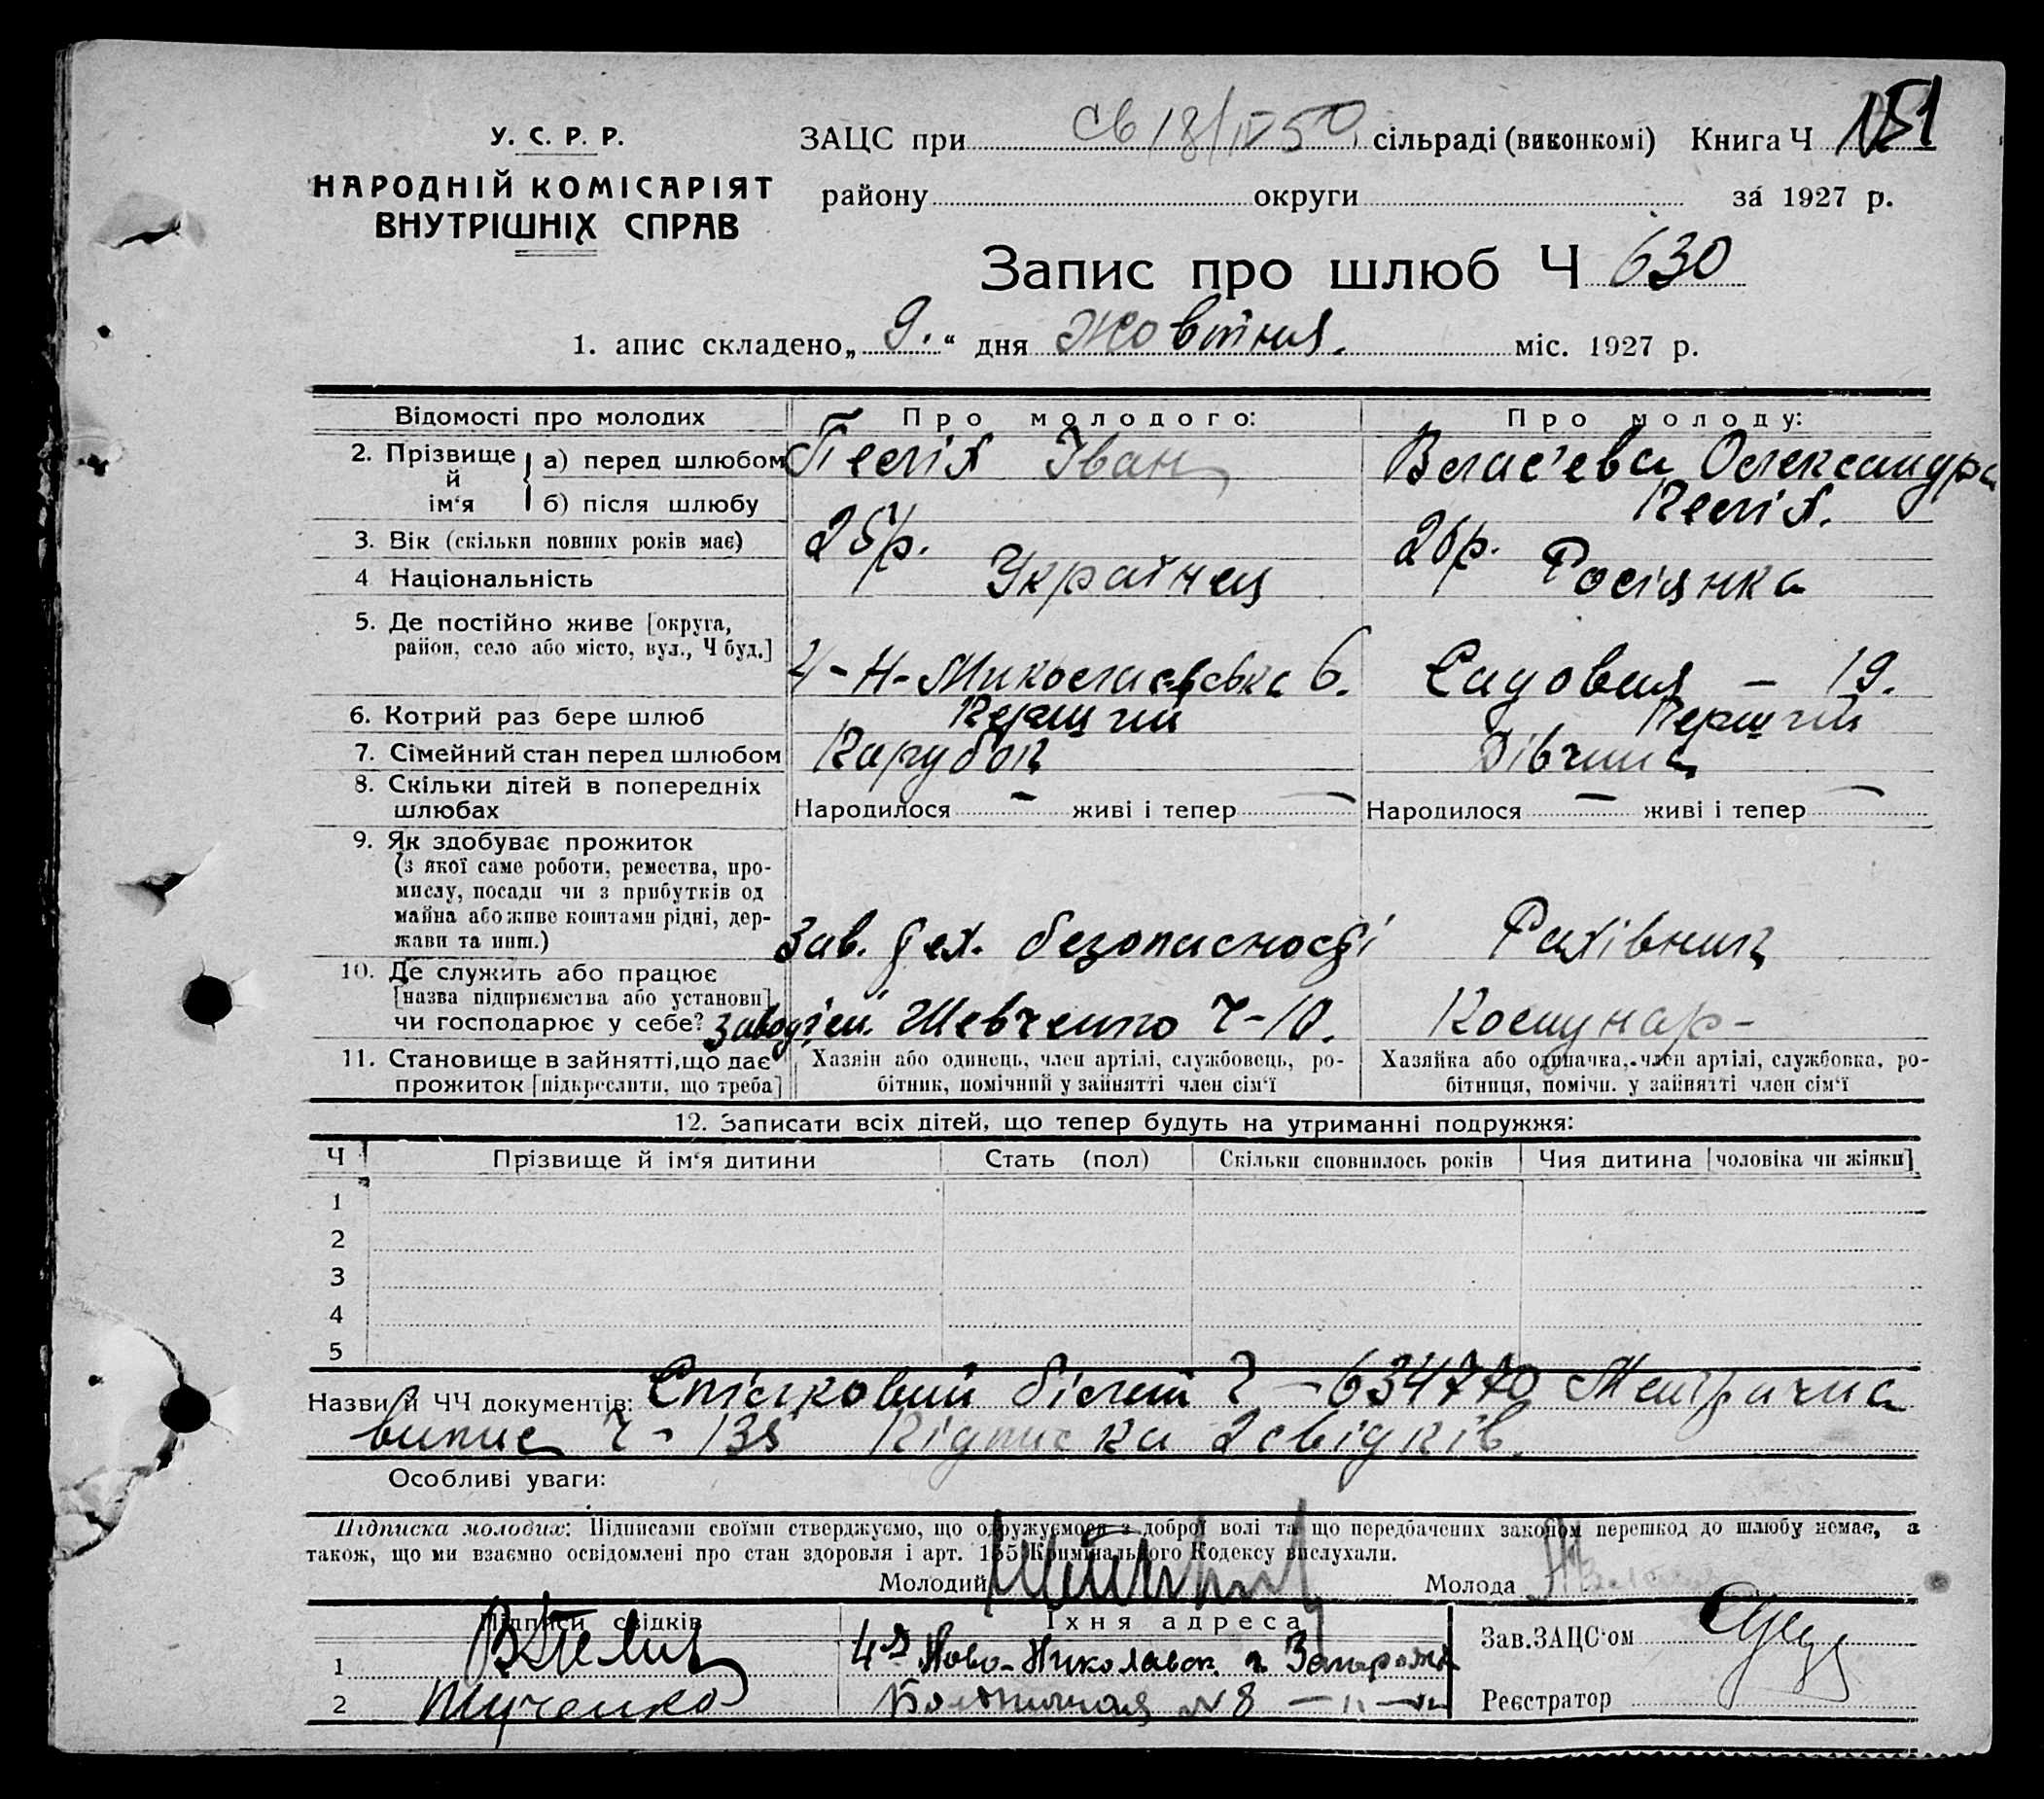 У. С. Р. Р.
НАРОДНІЙ КОМІСАРІЯТ
ВНУТРІШНІХ СПРАВ
ЗАЦС при св 18/IV 50 сільраді (виконкомі) Книга Ч 151
району округи за 1927 р.
Запис про шлюб Ч 630
1. апис складено „ 9. “ дня Жовтня. міс. 1927 р.
Відомості про молодих Про молодого: Про молоду:
2. Прізвище й ім‘я а) перед шлюбом Іван Влас'єва Олександра
б) після шлюбу
3. Вік (скільки повних років має) 25 р. 26 р.
4 Національність Українец Росіянка
5. Де постійно живе [округа,
район, село або місто, вул., Ч буд.] 4-Н-Миколаєвська 6. Садовая – 19.
6. Котрий раз бере шлюб Перший Перший
7. Сімейний стан перед шлюбом Парубок Дівчина
8. Скільки дітей в попередніх
шлюбах Народилося – живі і тепер – Народилося – живі і тепер –
9. Як здобуває прожиток
(з якої саме роботи, ремества, про-
мислу, посади чи з прибутків од
майна або живе коштами рідні, дер-
жави та инш.) Зав. тех. безопасності Рахівник
10. Де служить або працює
[назва підприємства або установи]
чи господарює у себе? Шевченко Ч-10. Комунар-
11. Становище в зайнятті, що дає
прожиток [підкреслити, що треба]
Хазяїн або одинець, член артілі, службовець, ро-
бітник, помічний у зайнятті член сім‘ї
Хазяйка або одиначка, член артілі, службовка, ро-
бітниця, помічн. у зайнятті член сім‘ї
12. Записати всіх дітей, що тепер будуть на утриманні подружжя:
Ч Прізвище й ім‘я дитини Стать (пол) Скільки сповнилось років Чия дитина [чоловіка чи жінки]
1
2
3
4
5
Назви й ЧЧ документів: Спілковий білет Ч – 634770 Метрична
випис Ч – 135 Підписка 2 свідків.
Особливі уваги:
Підписка молодих: Підписами своїми стверджуємо, що одружуємося з доброї волі та що передбачених законом перешкод до шлюбу немає, а
також, що ми взаємно освідомлені про стан здоровля і арт. 155 Кримінального Кодексу вислухали.
Молодий Молода
Підписи свідків Їхня адреса Зав. ЗАЦС‘ом
1 4я Ново-Николавск. г. Запорожье
2 № 8 – " – "
Реєстратор